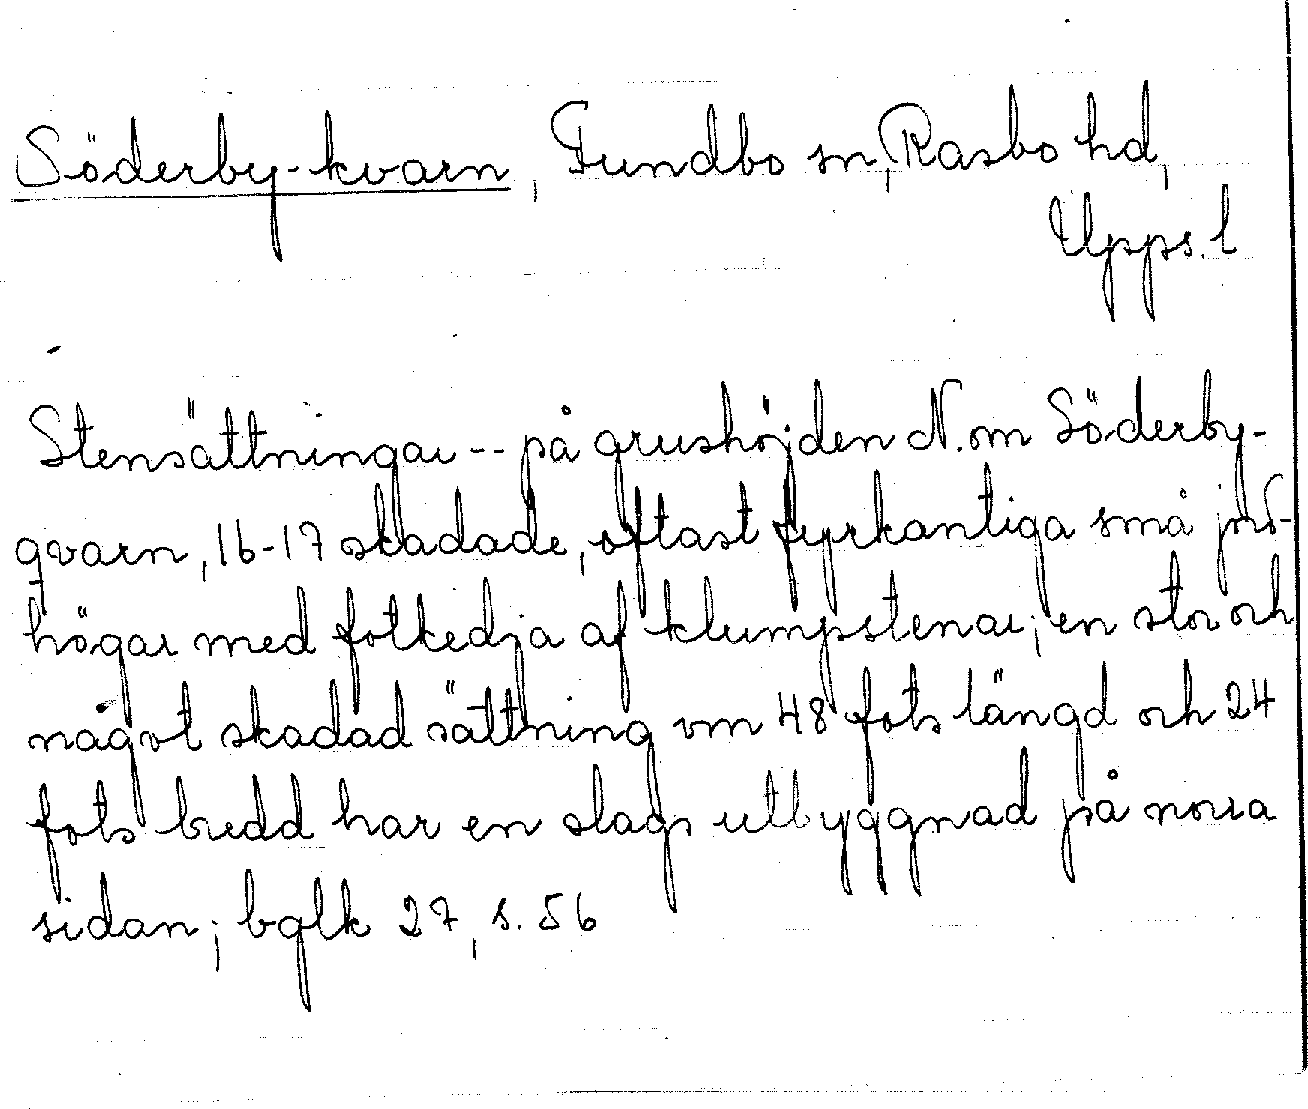 Söderby-kvarn, Funbo sn, Rasbo hd,
Upps. l
Stensättningar -- på grushöjden N. om Söderby-
qvarn, 16-17 skadade, oftast fyrkantiga små jord-
högar med fotkedja af klumpstenar; en stor och
något skadad sättning om 48 fots längd och 24
fots bredd har en slags utbyggnad på norra
sidan; bglk 27, s. 56